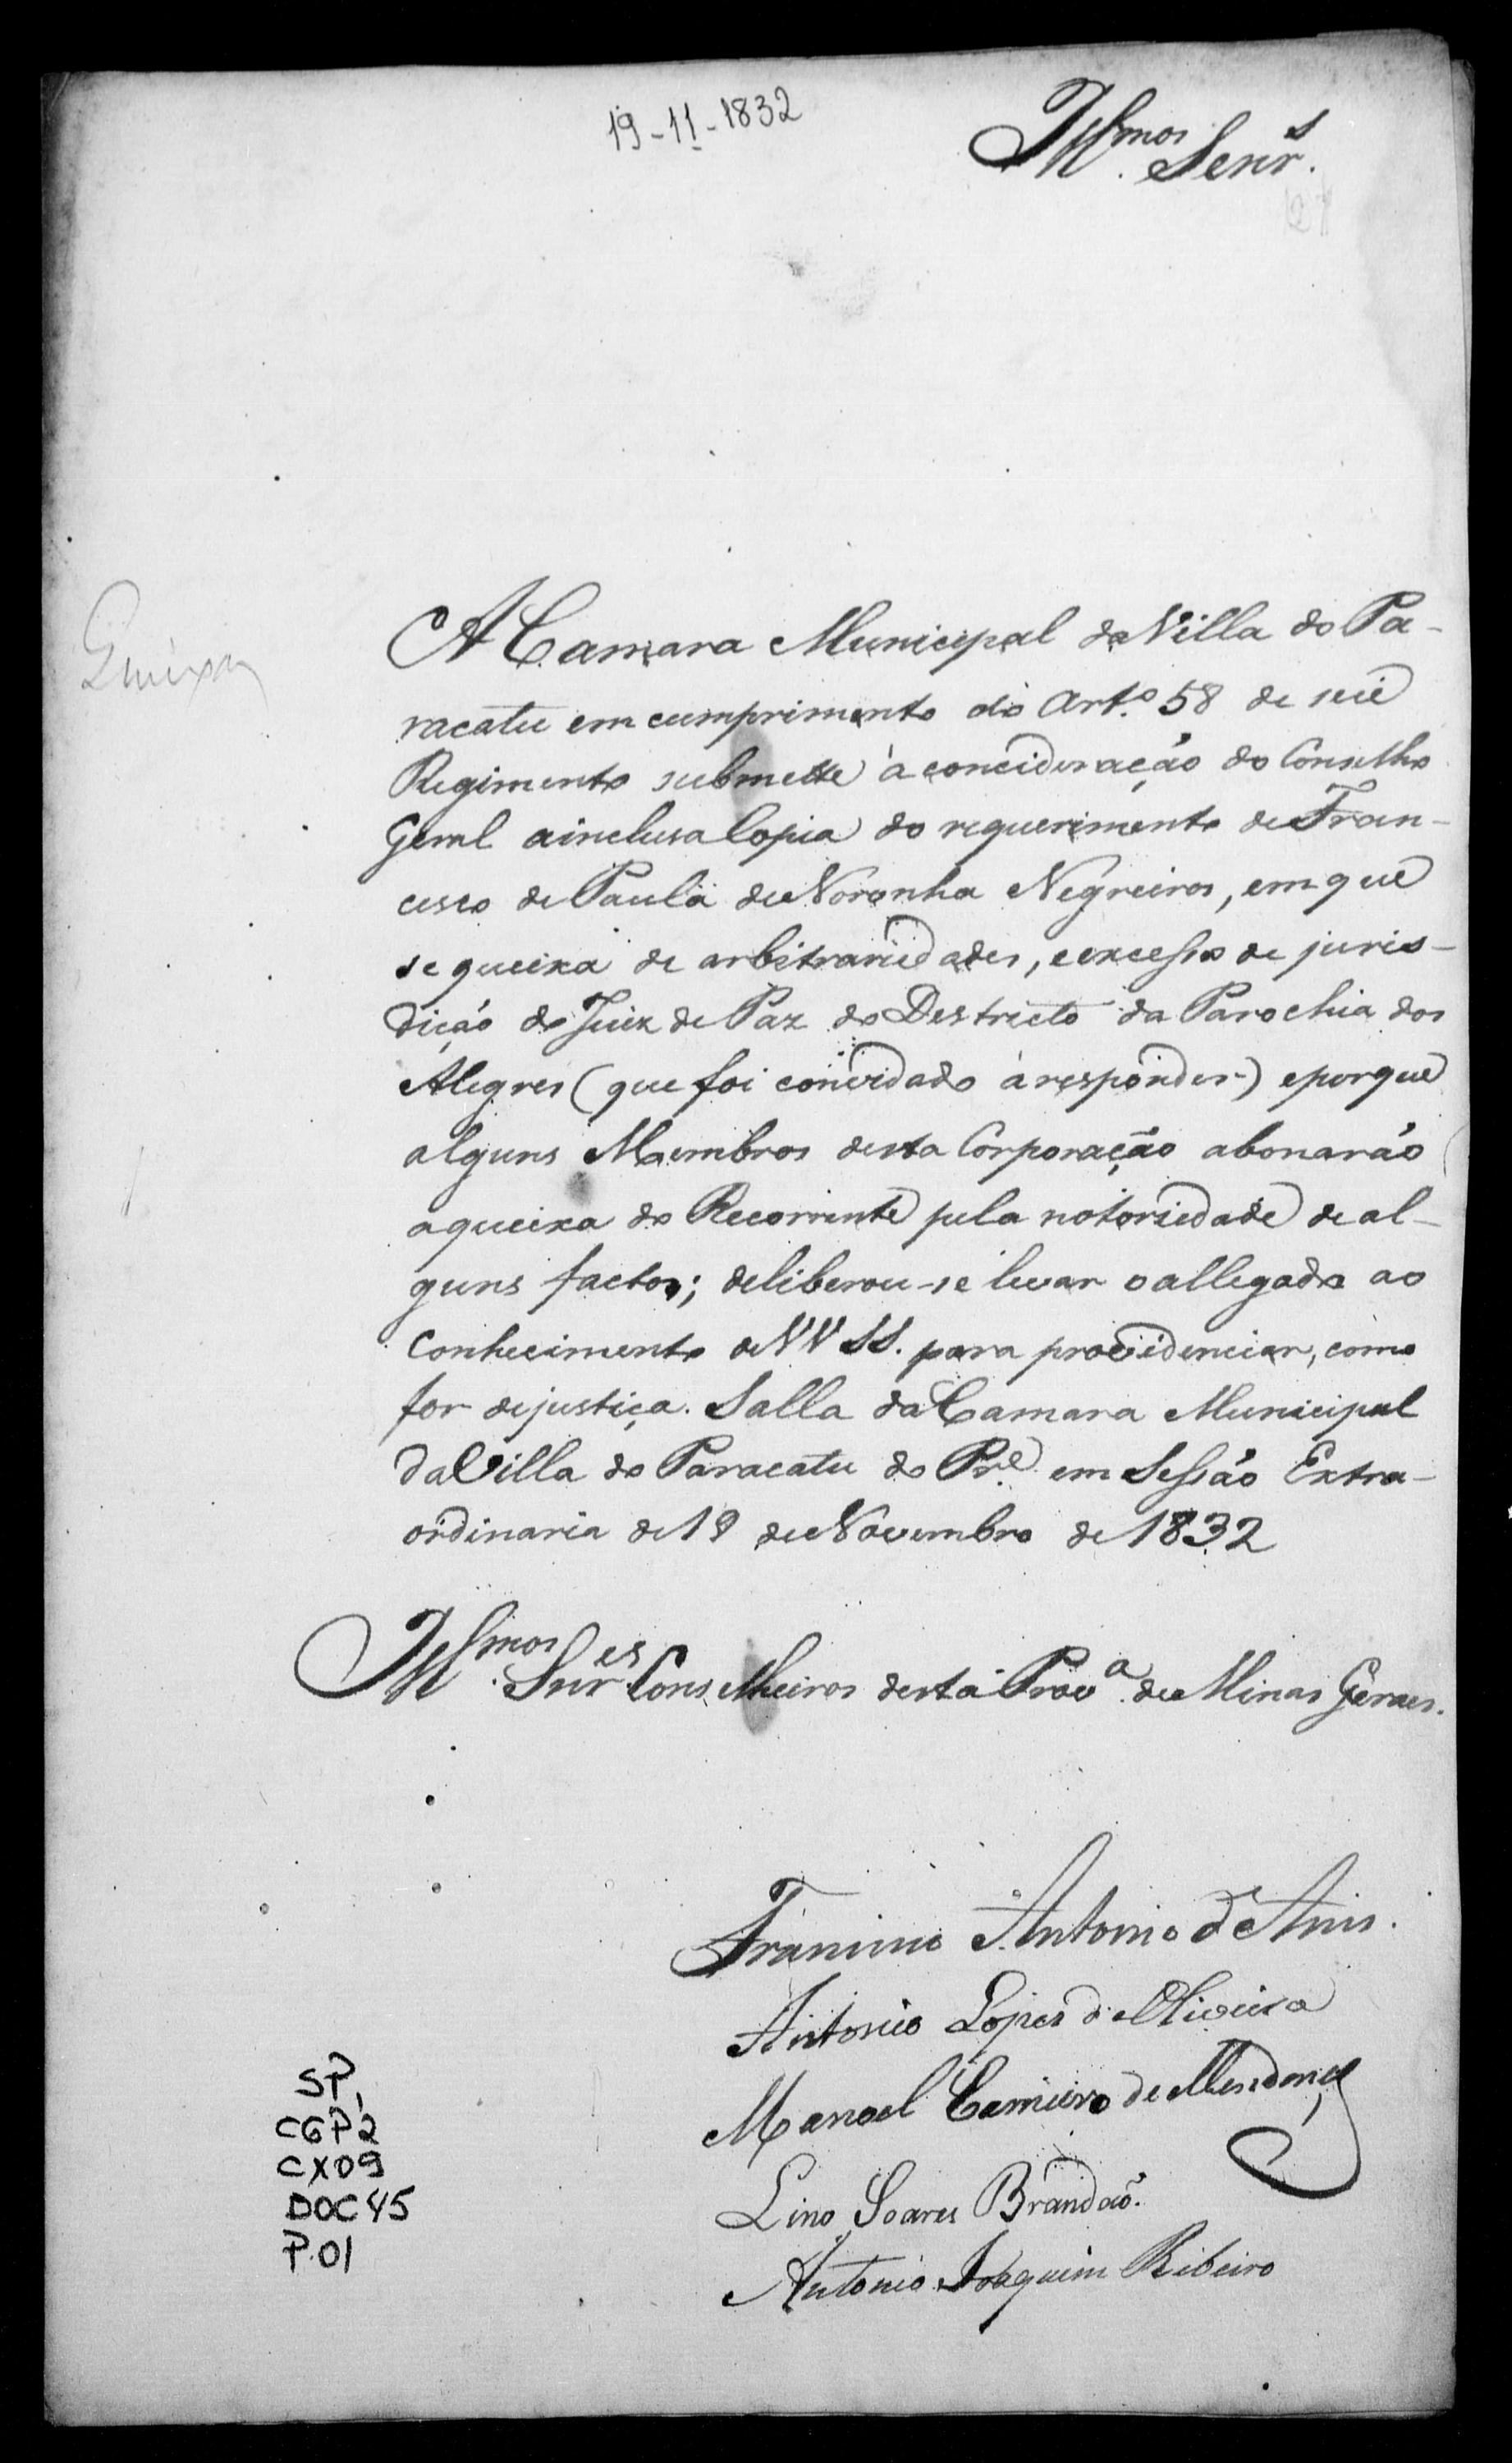 19-11-1832
Ill.mos Senr.s
127
Queixa
A Camara Municipal da Villa do Pa-
racatu em cumprimento do Art.º 58 de seu
Regimento submette á concideração do Conselho
Geral a inclusa Copia do requerimento de Fran-
cisco de Paula de Noronha Negreiros, em que
se queixa de arbitrariedades, e excesso de juris-
dição do Juiz de Paz do Destricto da Parochia dos
Alegres (que foi convidado á responder) e porque
alguns Membros desta Corporação abonarão
a queixa do Recorrente pela notoriedade de al-
guns factos; deliberou-se levar o allegado ao
Conhecimento de VV SS. para providenciar, como
for de justiça. Salla da Camara Municipal
da Villa do Paracatu do Pr.e em Sessão Extra-
ordinaria de 19 de Novembro de 1832
Ill.mos Snr.es Conselheiros desta Prov.a de Minas Geraes.
Antonio d'Assis.
Antonio Lopes d'Oliveira
Manoel Carneiro de Mendonça
Lino Soares Brandaõ.
Antonio Joaquim Ribeiro
SP,
CGP2
CX09
DOC 45
P.01